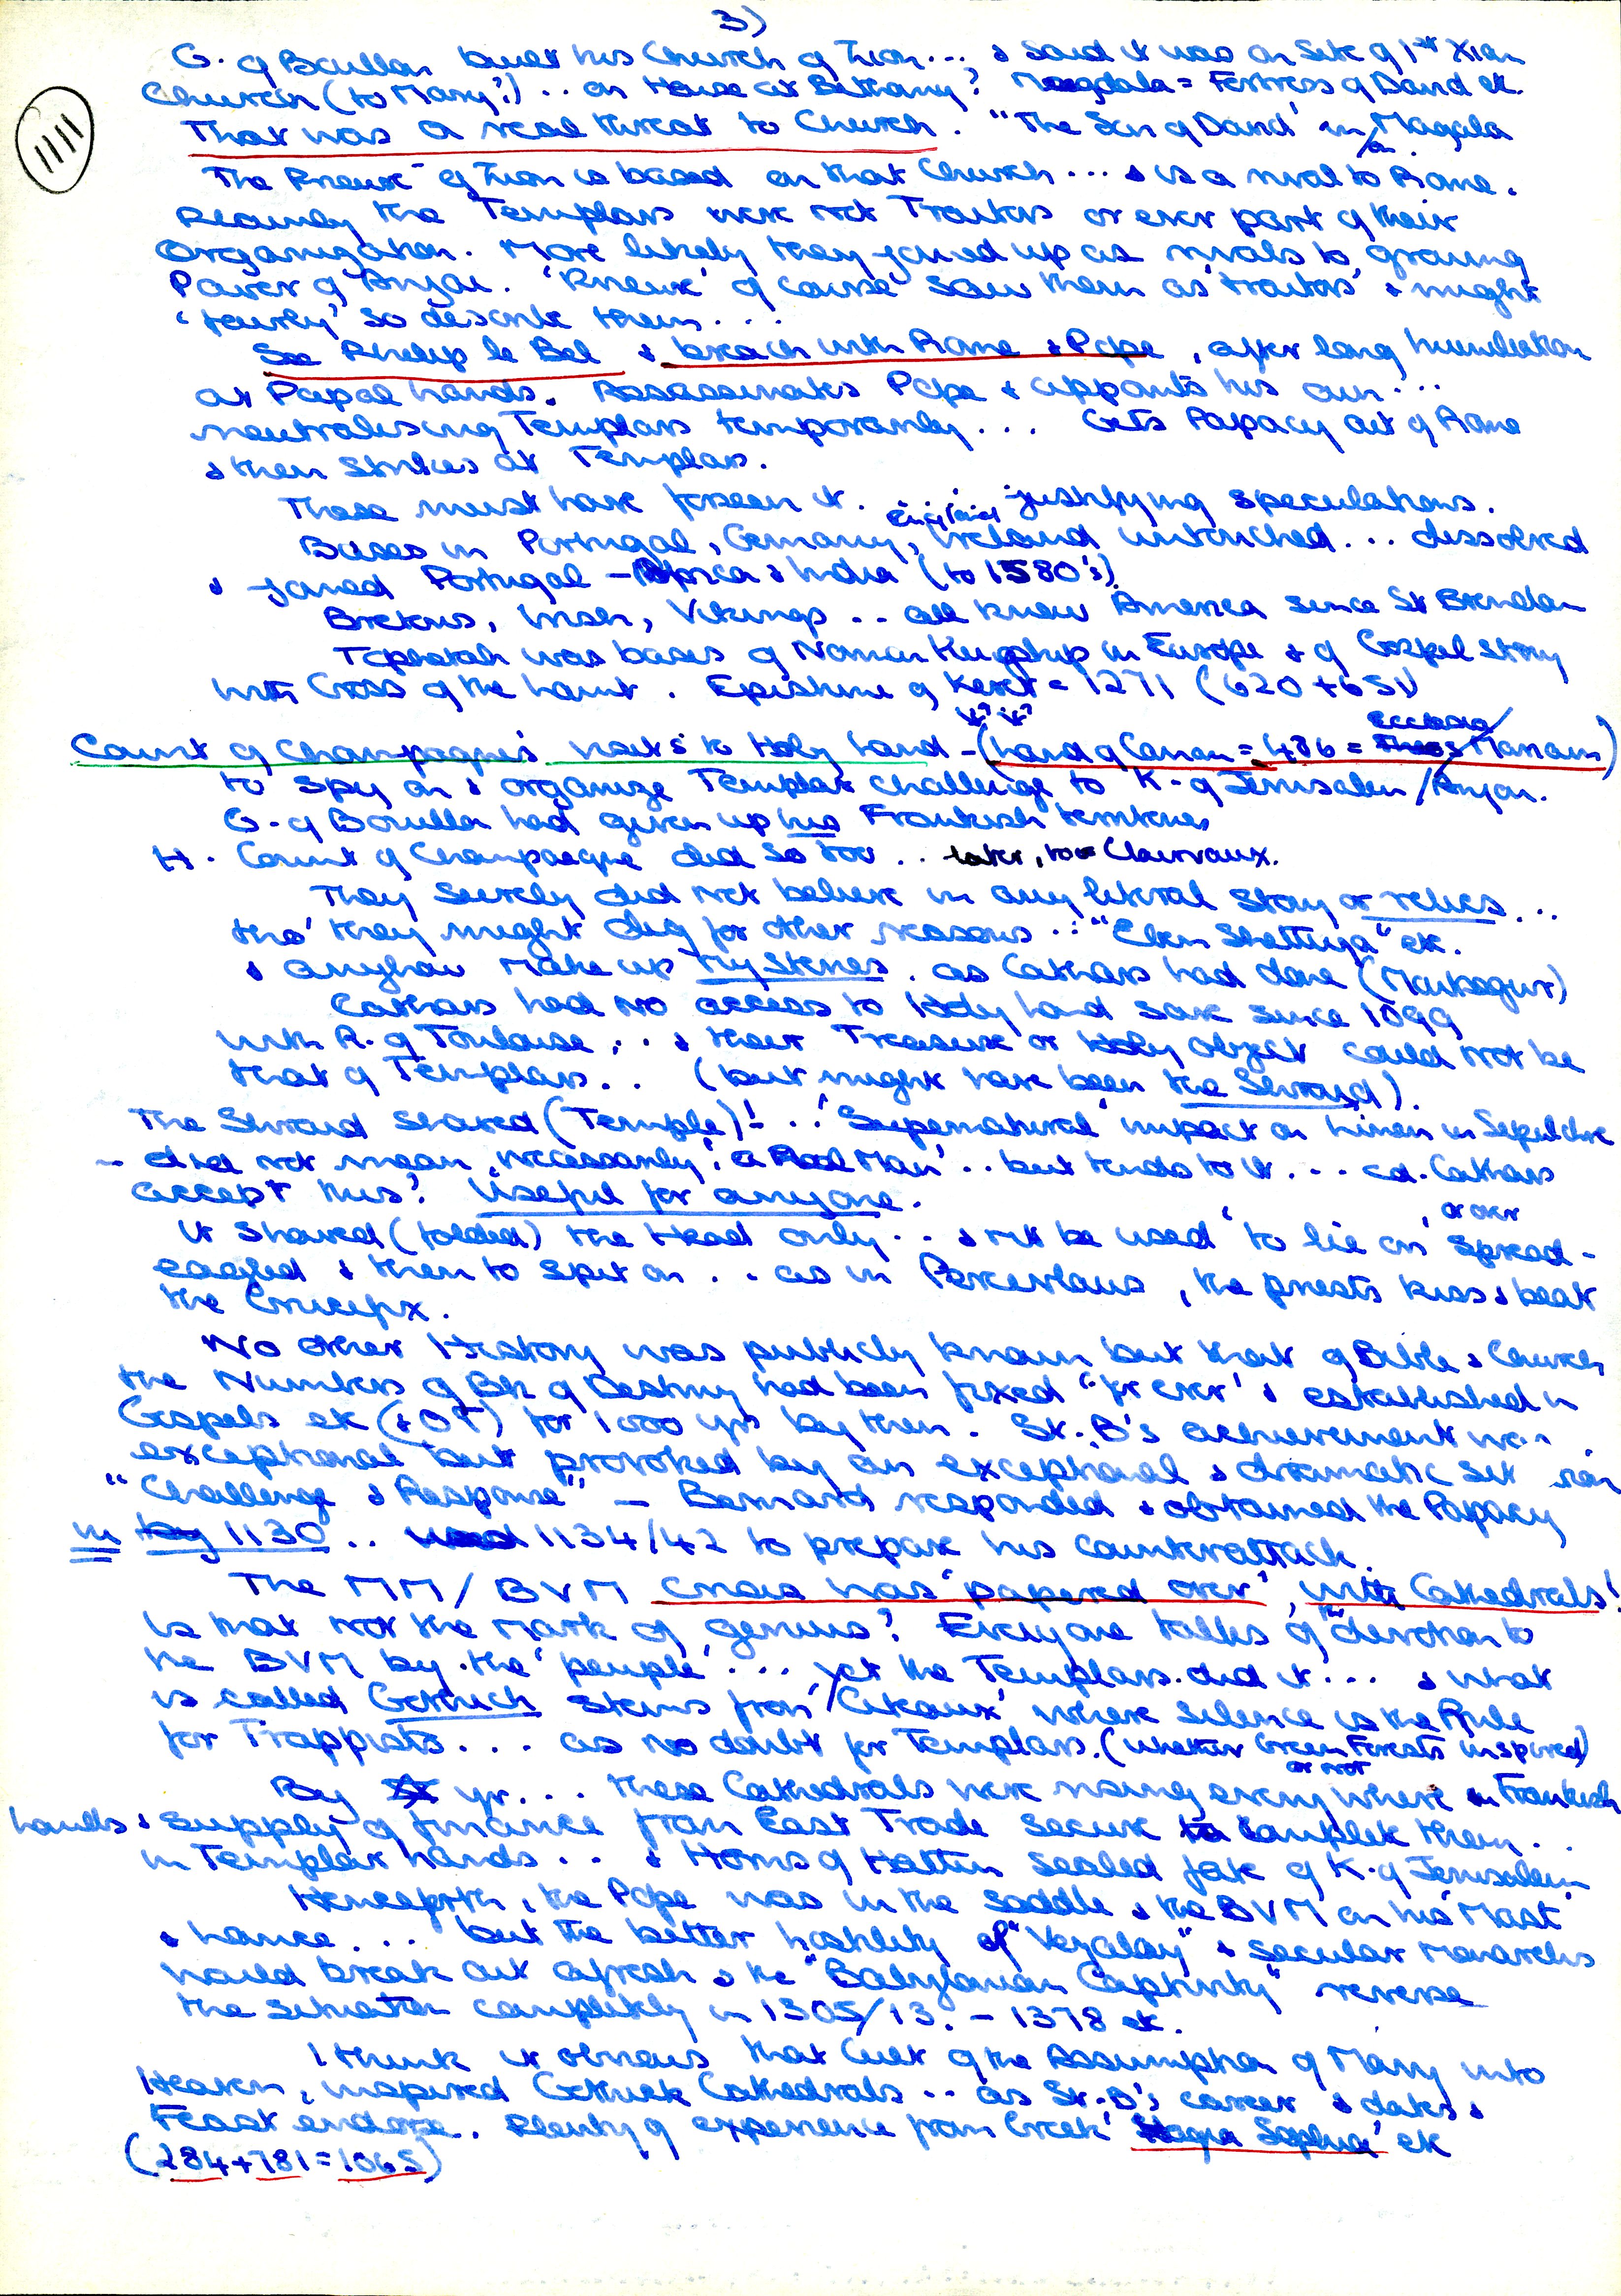 3)
G. of Bouillon built his Church of Zion... & said it was on Site of 1st Xian
Church (to Mary?) .. or House at Bethany? Magdala = Fortress of David etc.
1111
That was a real threat to Church. "The Son of David' in/on Magdala
The Prieuré of Zion is based on that Church... & is a rival to Rome.
the Templars were not Traitors or ever part of their
Organization. More likely they joined up as rivals to growing
Power of Anjou. 'Prieuré' of course saw them as 'traitors' & might
'fairly' so describe them...
See Philip le Bel & breach with Rome & Pope, after long humiliation
at Papal hands. Assassinates Pope & appoints his own...
neutralising Templars temporarily... Gets Papacy out of Rome
& then strikes at Templars.
These must have forseen it. ... justifying speculations.
Bases in Portugal, Germany, England, Ireland untouched... dissolved
& joined Portugal - Africa & India (to 1580's)
Bretons, Irish, Vikings .. all knew America since St Brendan
was basis of Kingship in Europe & of Gospel story
with Cross of the . of = 1271 (620 + 651)
Count of Champagne's visits to Holy Land - (Land of Canaan = 486 = Ecclesia/ Mariam)
to spy on & organize Templar challenge to K. of Jerusalem / Anjou.
G. of Bouillon had given up his Frankish territories
H. Count of Champagne did so too .. later, to Clairvaux.
They surely did not believe in any literal story or relics...
tho' they might dig for other reasons .. "Eben Shettiya" etc.
& anyhow make up mysteries. as Cathars had done (Montsegur)
Cathars had no access to Holy Land save since 1099
with R. of Toulouse... & their Treasure or Holy Object could not be
that of Templars.. (but might have been the Shroud).
The Shroud shared (Temple)! .. 'Supernatural' impact on Linen in Sepulchre
- did not mean, necessarily, 'a Real Man' .. but tends to it... cd. Cathars
accept this? Useful for anyone.
It showed (folded) the Head only... & not be used 'to lie on' or over spread-
eagled & then to spit on .. as in Perceslaus, the priests kiss & beat
the Crucifix.
No other History was publicly known but that of Bible & Church
the Numbers of Bk of Destiny had been fixed "for ever' & established in
Gospels etc (& OT) for 1000 yrs by then. St. B's achievement was
exceptional but provoked by an exceptional & dramatic
"Challenge & Response" - Bernard responded & obtained the Papacy
in by 1130 .. used 1134/42 to prepare his counterattack.
The MM / BVM crisis was 'papered over', with Cathedrals!
Is that not the mark of genius? Everyone talks of the devotion to
the BVM by the 'people'.... yet the Templars did it... & what
is called Gothick stems from 'Citeaux' where silence is the Rule
for Trappists... as no doubt for Templars. (whether Green Forests inspired or not)
By yr... these Cathedrals were rising everywhere in Frankish
lands & supply of finance from East Trade secure to complete them..
in Templar hands... & Horns of Hattin sealed fate of K. of Jerusalem
Henceforth, the Pope was in the saddle & the BVM on his Mast
& hence... but the bitter hostility of "Vezelay" & secular monarchs
would break out afresh & the "Babylonian Captivity" reverse
the situation completely in 1305/13. - 1378 etc.
I think it obvious that Cult of the Assumption of Mary into
Heaven, inspired Gothick Cathedrals .. as St. B's career & dates &
Feast endorse. Plenty of experience from Greek 'Hagia Sophia' etc
(284+781=1065)